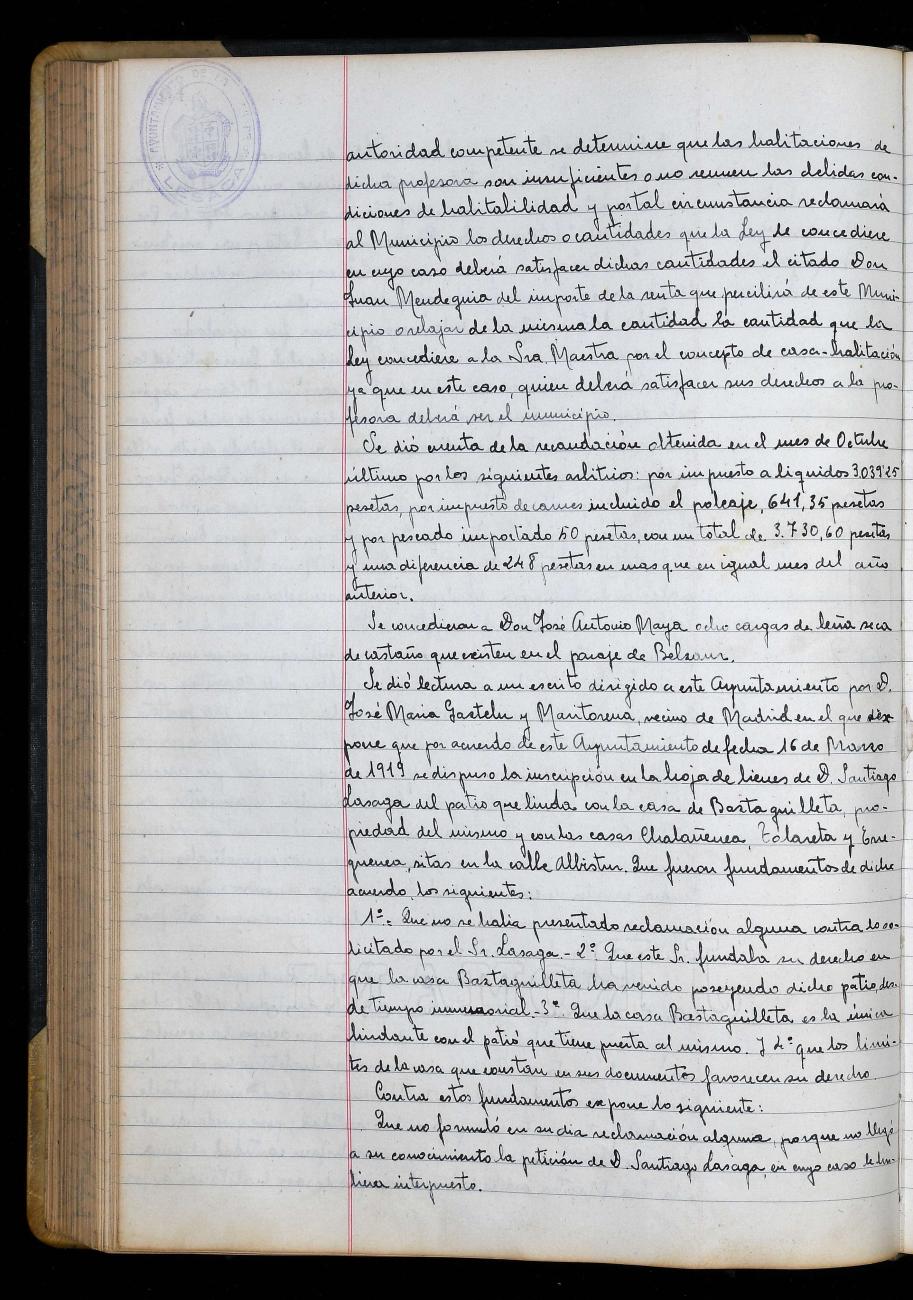 AYUNTAMIENTO DE LA VILLA DE
LESACA
autoridad competente se determine que las habitaciones de
dicha profesora son insuficientes o no reunen las debidas con-
diciones de habitabilidad y por tal circunstancia reclamará
al Municipio los derechos o cantidades que la Ley le concediere
en cuyo caso deberá satisfacer dichas cantidades el citado Don
Juan Mendeguia del importe de la renta que percibirá de este Muni-
cipio o rebajar de la misma la cantidad la cantidad que la
Ley concediere a la Sra. Maestra por el concepto de casa-habitación
ya que en este caso, quien deberá satisfacer sus derechos a la pro-
fesora deberá ser el municipio.
Se dió cuenta de la recaudación obtenida en el mes de Octubre
último por los siguientes arbitrios: por impuesto a liquidos 3.039'25
pesetas, por impuesto de carnes incluido el poleaje, 641,35 pesetas
y por pescado importado 50 pesetas, con un total de 3.730,60 pesetas
y una diferencia de 248 pesetas en mas que en igual mes del año
anterior.
Se concedieron a Don José Antonio Maya ocho cargas de leña seca
de castaño que existen en el paraje de
Se dió lectura a un escrito dirigido a este Ayuntamiento por D.
José Maria Gastelu y Mantorena, vecino de Madrid en el que
pone que por acuerdo de este Ayuntamiento de fecha 16 de Marzo
de 1919 se dispuso la inscripción en la hoja de bienes de D. Santiago
Lasaga del patio que linda con la casa de Bastaguilleta, pro-
piedad del mismo y con las casas Chalañenea, Tolareta y Ene-
quenea, sitas en la calle Albistur. Que fueron fundamentos de dicho
acuerdo, los siguientes:
1º = Que no se habia presentado reclamación alguna contra lo so-
licitado por el Sr. Lasaga. - 2º Que este Sr. fundaba su derecho en
que la casa Bastaguilleta ha venido poseyendo dicho patio, des-
de tiempo inmemorial. - 3º. Que la casa Bastaguilleta es la única
lindante con el patio que tiene puerta al mismo. Y 4º que los limi-
tes de la casa que constan en sus documentos favorecen su derecho.
Contra estos fundamentos expone lo siguiente:
Que no formuló en su dia reclamación alguna, porque no llegó
a su conocimiento la petición de D. Santiago Lasaga, en cuyo caso le hu-
biera interpuesto.